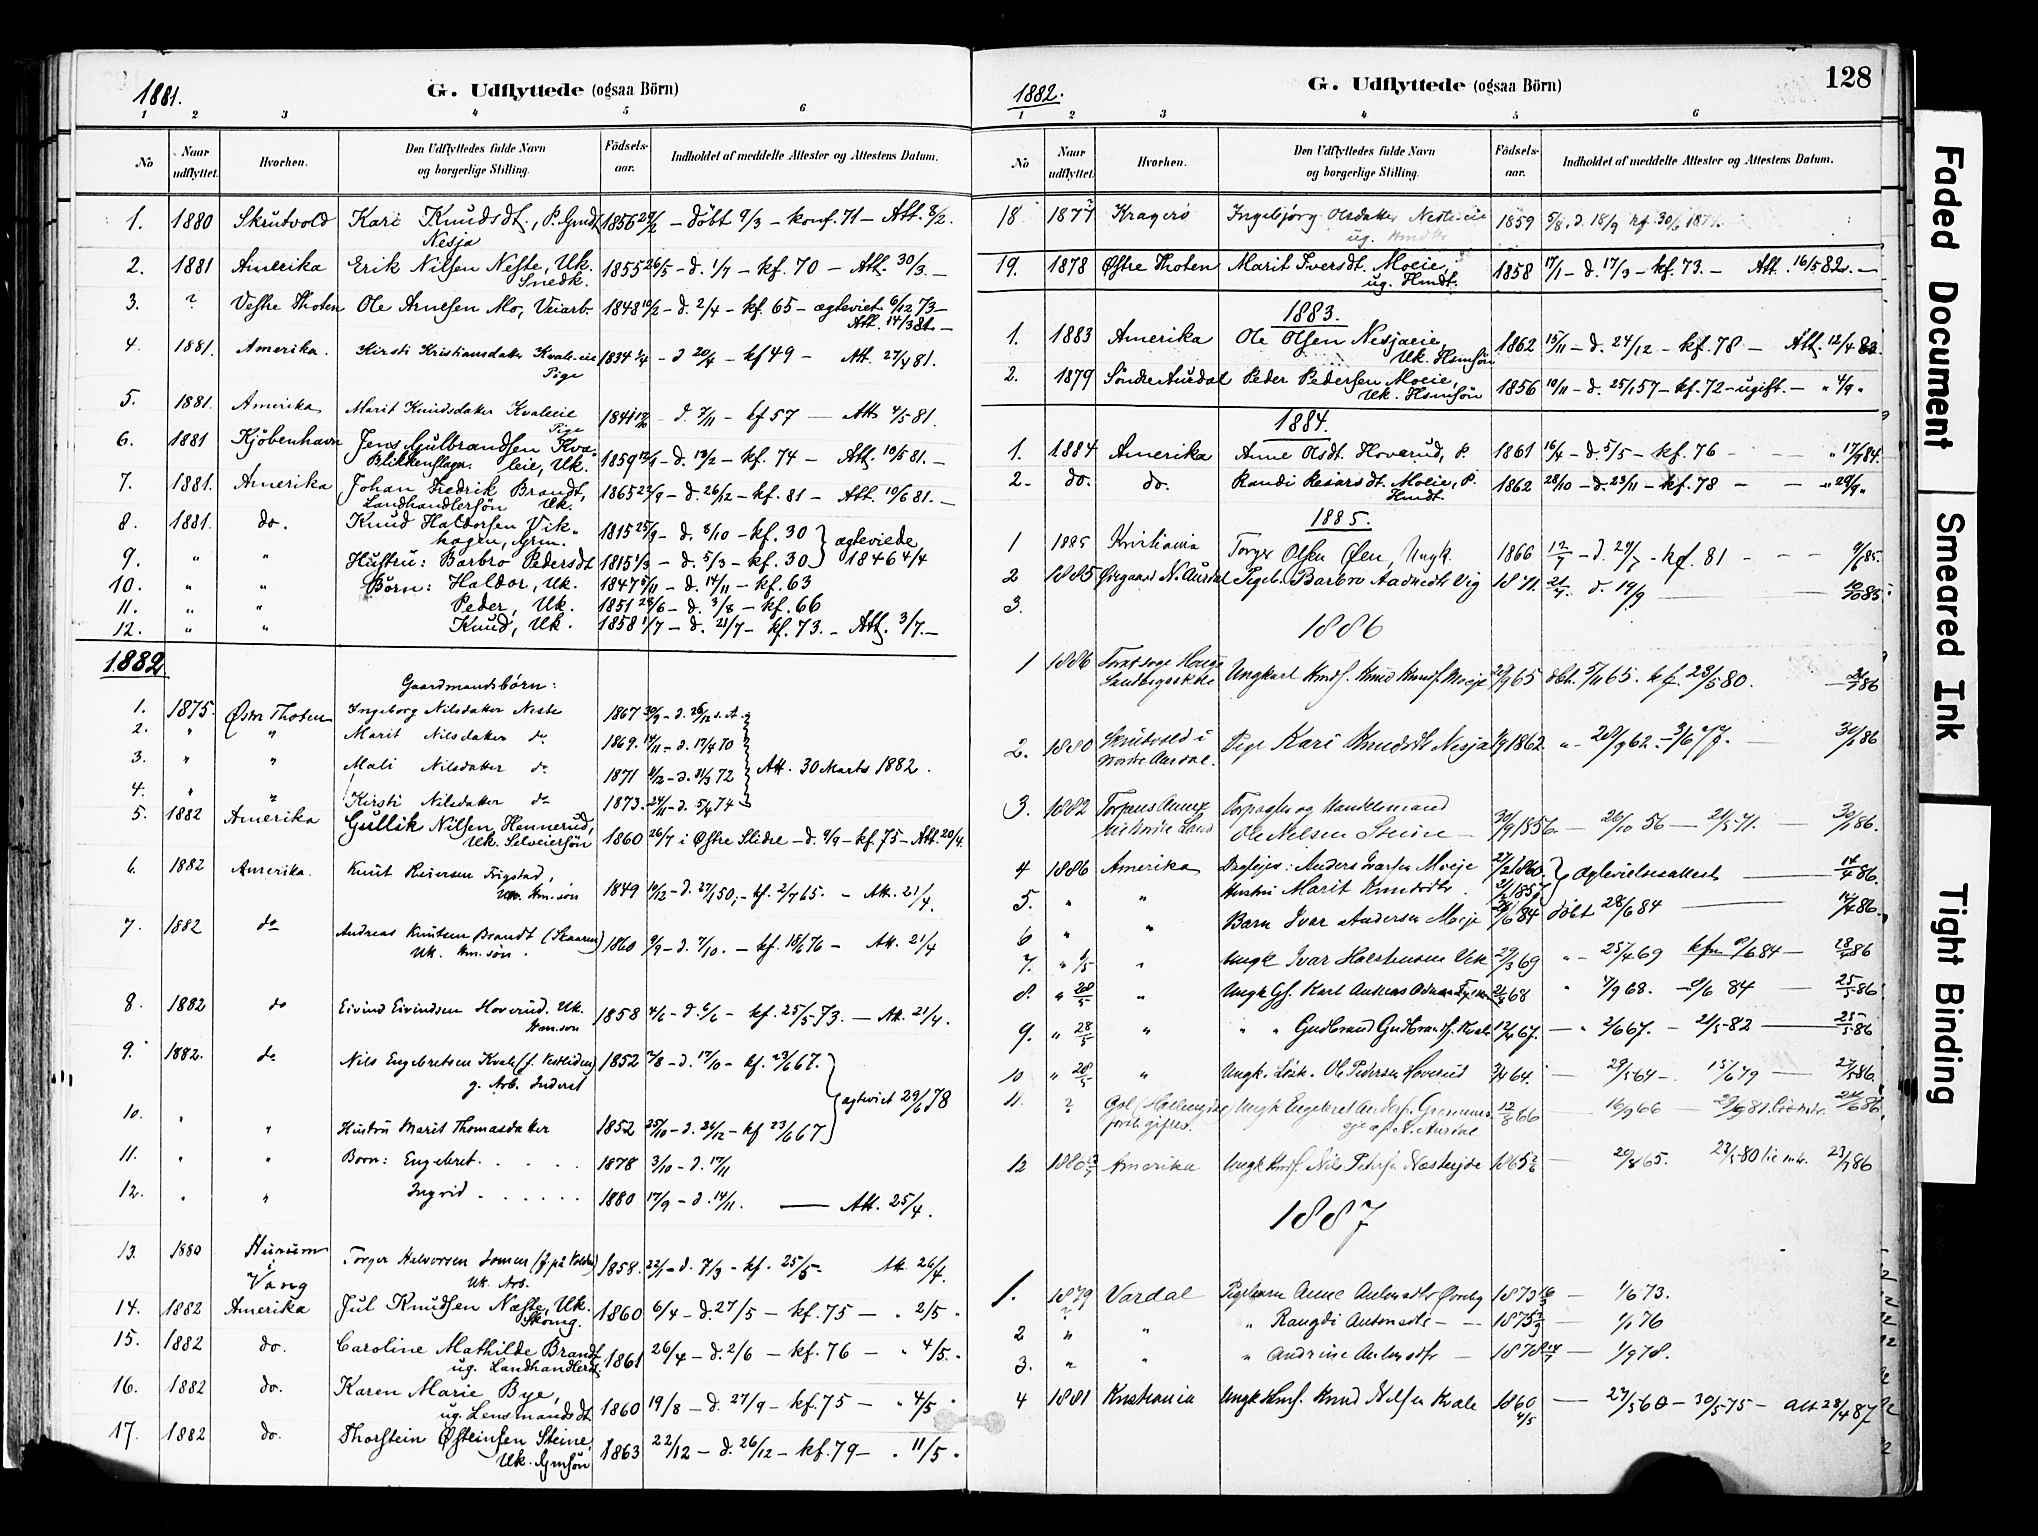 1881.
G. Udflyttede (ogsaa Börn)
1 2 3 4 5 6
No Naar udflyttet. Hvorhen. Den Udflyttedes fulde Navn og borgerlige Stilling. Födsels-aar. Indholdet af meddelte Attester og Attestens Datum.
1. 1880 Skrutvold Kari Knudsdt., P. Gmdt. 1856 29/2 – döbt 9/3 – konf. 71 – Att. 8/2.
Nesja
2. 1881 Amerika Erik Nilsen Neste, Uk. 1855 26/5 – d. 1/7 – kf. 70 – Att. 30/3. –
Snedk.
3. ? Vestre Thoten Ole Arnesen Mo, Veiarb. 1848 10/2 – d. 2/4 – kf. 65 – ægteviet 6/12 73 –
Att. 14/3 81. –
4. 1881. Amerika. Kirsti Kristiansdatter Kvale-eie 1834 – d 20/4 – kf 49 – Att. 27/4 81.
Pige
5. 1881. Amerika Marit Knudsdatter Kvaleeie 1841 – d. 7/11 – kf 57 – Att. 4/5 81.
Pige
6. 1881 Kjöbenhavn Jens Gulbrandsen Kva-
Blikkenslager. leie, Uk. 1859 12/1 – d. 13/2 – kf. 74 – Att. 10/5 81. –
7. 1881. Amerika Johan Fredrik Brandt, 1865 22/9 – d. 26/12 – kf. 81 – Att. 10/6 81. –
Landhandlersön Uk.
8. 1881. do. Knud Haldorsen Vik- 1815 25/9 – d. 8/10 – kf. 30
hagen, Grm. ægteviede
9. " " Hustru: Barbro Pedersdt 1815 1/3 – d. 5/3 – kf. 30 1846 4/4
10. " " Börn: Haldor, Uk. 1847 5/11 – d. 14/11 – kf. 63
11. " " Peder, Uk. 1851 28/6 – d. 3/8 – kf. 66
12. " " Knud, Uk. 1858 1/7 – d. 21/7 – kf. 73. – Att. 3/7. –
1882
Gaardmandsbörn:
1. 1875. Östre Thoten Ingeborg Nilsdatter Neste 1867 30/9 – d. 26/12 s. A.
2. " " Marit Nilsdatter do 1869. 14/11 – d. 17/4 70
3. " " Mali Nilsdatter do 1871 9/12 – d. 31/3 72 Att. 30 Marts 1882.
4. " " Kirsti Nilsdatter do 1873. 24/11 – d. 5/4 74
5. 1882 Amerika Gullik Nilsen Hennerud, 1860 26/7 i Østre Slidre – d. 9/9 – kf. 75 – Att. 20/4.
Uk. Selveiersön
6. 1882 Amerika. Knut Reiersen Frigstad, 1849 10/12 – d. 27/1 50, – kf. 2/7 65. – Att. 21/4.
Uk. Hm.sön
7. 1882 do Andreas Knutsen Brandt (Skaaren) 1860 9/9 – d. 7/10. – kf. 18/6 76 – Att. 21/4
Uk. Hm.sön.
8. 1882 do Eivind Eivindsen Hoverud. Uk. 1858 4/6 – d. 6/6 – kf. 25/5 73. – Att. 21/4.
Hm.søn
9. 1882. do Nils Engebretsen Kvale (f. Vestliden) 1852 – d. 17/10 – kf. 23/6 67.
g. Arb. Inderst ægteviet 29/6 78
10. " " Hustru Marit Thomasdatter 1852 25/10 – d. 26/12 – kf 23/6 67
11. " " Born: Engebret 1878 3/10 – d. 17/11
12. " " Ingrid 1880 17/9 – d. 14/11. — Att. 25/4.
13. 1880 Hurum i Torger Halvorsen Lomen (f. på Volden) 1858. 22/1 – d. 7/3 – kf. 25/5 – Att. 26/4.
Vang Uk. Arb.
14. 1882 Amerika Jul Knudsen Næste, Uk. 1860 6/4 – d. 27/5 – kf. 75 – " 2/5 "
Skomg.
15. 1882 do. Caroline Mathilde Brandt 1861 26/4 – d. 2/6 – kf. 76 – " 4/5. "
ug. Landhandlerdt
16. 1882 do. Karen Marie Bye, 1860 19/8 – d. 27/9 – kf. 75 – " 4/5 "
ug. Lensmandsdt
17. 1882 do. Thorstein Østeinsen Steine, 1863 22/12 – d. 26/12 – kf. 79 – " 11/5 "
Uk. Gmsön
1882.
G. Udflyttede (ogsaa Börn)
128
1 2 3 4 5 6
No Naar udflyttet. Hvorhen. Den Udflyttedes fulde Navn og borgerlige Stilling. Födsels-aar. Indholdet af meddelte Attester og Attestens Datum.
18 1877 Kragerö Ingebjörg Olsdatter Nesteeie 1859 5/8, d. 18/9 kf. 30/6 187
ug. Hmdtr
19. 1878 Østre Thoten Marit Iversdt. Moeie, 1858 17/1 – d. 17/3 – kf. 73. – Att. 16/5 82. –
ug. Hmdt.
1883.
1. 1883 Amerika Ole Olsen Nesjaeie, 1862 15/11 – d. 24/12 – kf. 78 – Att. 12/4 83.
Uk. Hsmsön
2. 1879 Söndre Aurdal Peder Pedersen Moeie, 1856 10/11 – d. 25/1 57 – kf. 72 – ugift. – " 4/9 "
Uk. Hsmsön
1884.
1. 1884 Amerika Anne Olsdt. Hoverud, P. 1861 16/4 – d. 5/5 – kf. 76 – – " 17/4 84.
2. do. do. Randi Reiarsdt. Moeie, P. 1862 28/10 – d. 23/11 – kf. 78 – – " 29/9 "
Hmdt.
1885.
1 1885 Kristiania Torger Olsen Øen, Ungk. 1866 12/7 – d. 29/7 – kof. 81 – – – 9/6 85.
2 1885 N. Aurdal Pigeb. Barbro Aadnedtr Vig 1871. d. 19/9 85
3.
1886
1 1886 Ungkarl Hmdf. Knud Knudf. Moeje 29/9 65 dbt. 5/11 65. kf. 23/5 80. 86
2. 1880 Skrutvold i Pige Kari Knudsdt. Nesja 1862. " 28/9 62. – 3/6 77. – 30/1 86
Nordre Aurdal.
3. 1882 Torpens Annex Forpagter og Handelsmand
Nordre Land Ole Nelsen Steine – 30/9 1856. – 26/10 56 – 21/5 71. – 30/1 86.
4 1886 Amerika : Anders Ivarsen Moeje 1860. Ægtevielsesattest — 14/4 86.
5. " " Hustru Marit Knudsdtr. 1857
6 " " Barn Ivar Andersen Moeje 84 döbt 28/6 84 — 14/4 86.
7. " " Ungk Ivar Halstensen Vik 29/3 69 " – 25/4 69 84 – 28/4 86
8. " 28/5 " Ungk Gf. Karl Andreas 68 " 4/9 68. – 84 – 25/5 86
9. " 28/5 " " " Gudbrand Gudbrandf. 67. – " 2/6 67. – 21/5 82 – 25/5 86
10 " 28/5 " Ungk. Ole Pedersen Hoverud 64. – 29/5 64 – 15/6 79 – 27/5 86.
11. ? Ungk Engebret Andersf. 12/8 66 — 16/9 66 – 81. 86.
N. Aurdal
12 1886 Amerika Ungk Hmdf. Nils Petersen Næsteejde 1865 – 20/8 65. 23/5 80 86
1887
1. 1879 Vardal Pigebarn Anne Antonsdtr Øvreby 1873 – 1/6 73.
2 " " " Rangdi Antonsdtr – – 1875 — 76
3. " " " Andrine Antonsdtr – 1878 – 1/9 78.
4 1881 Kristiania Ungk Hmf. Knud Nelsen Kvale 1860 4/5 — 27/5 60 – 30/5 75 – Att 28/4 87
Faded Document
Smeared Ink
Tight Binding